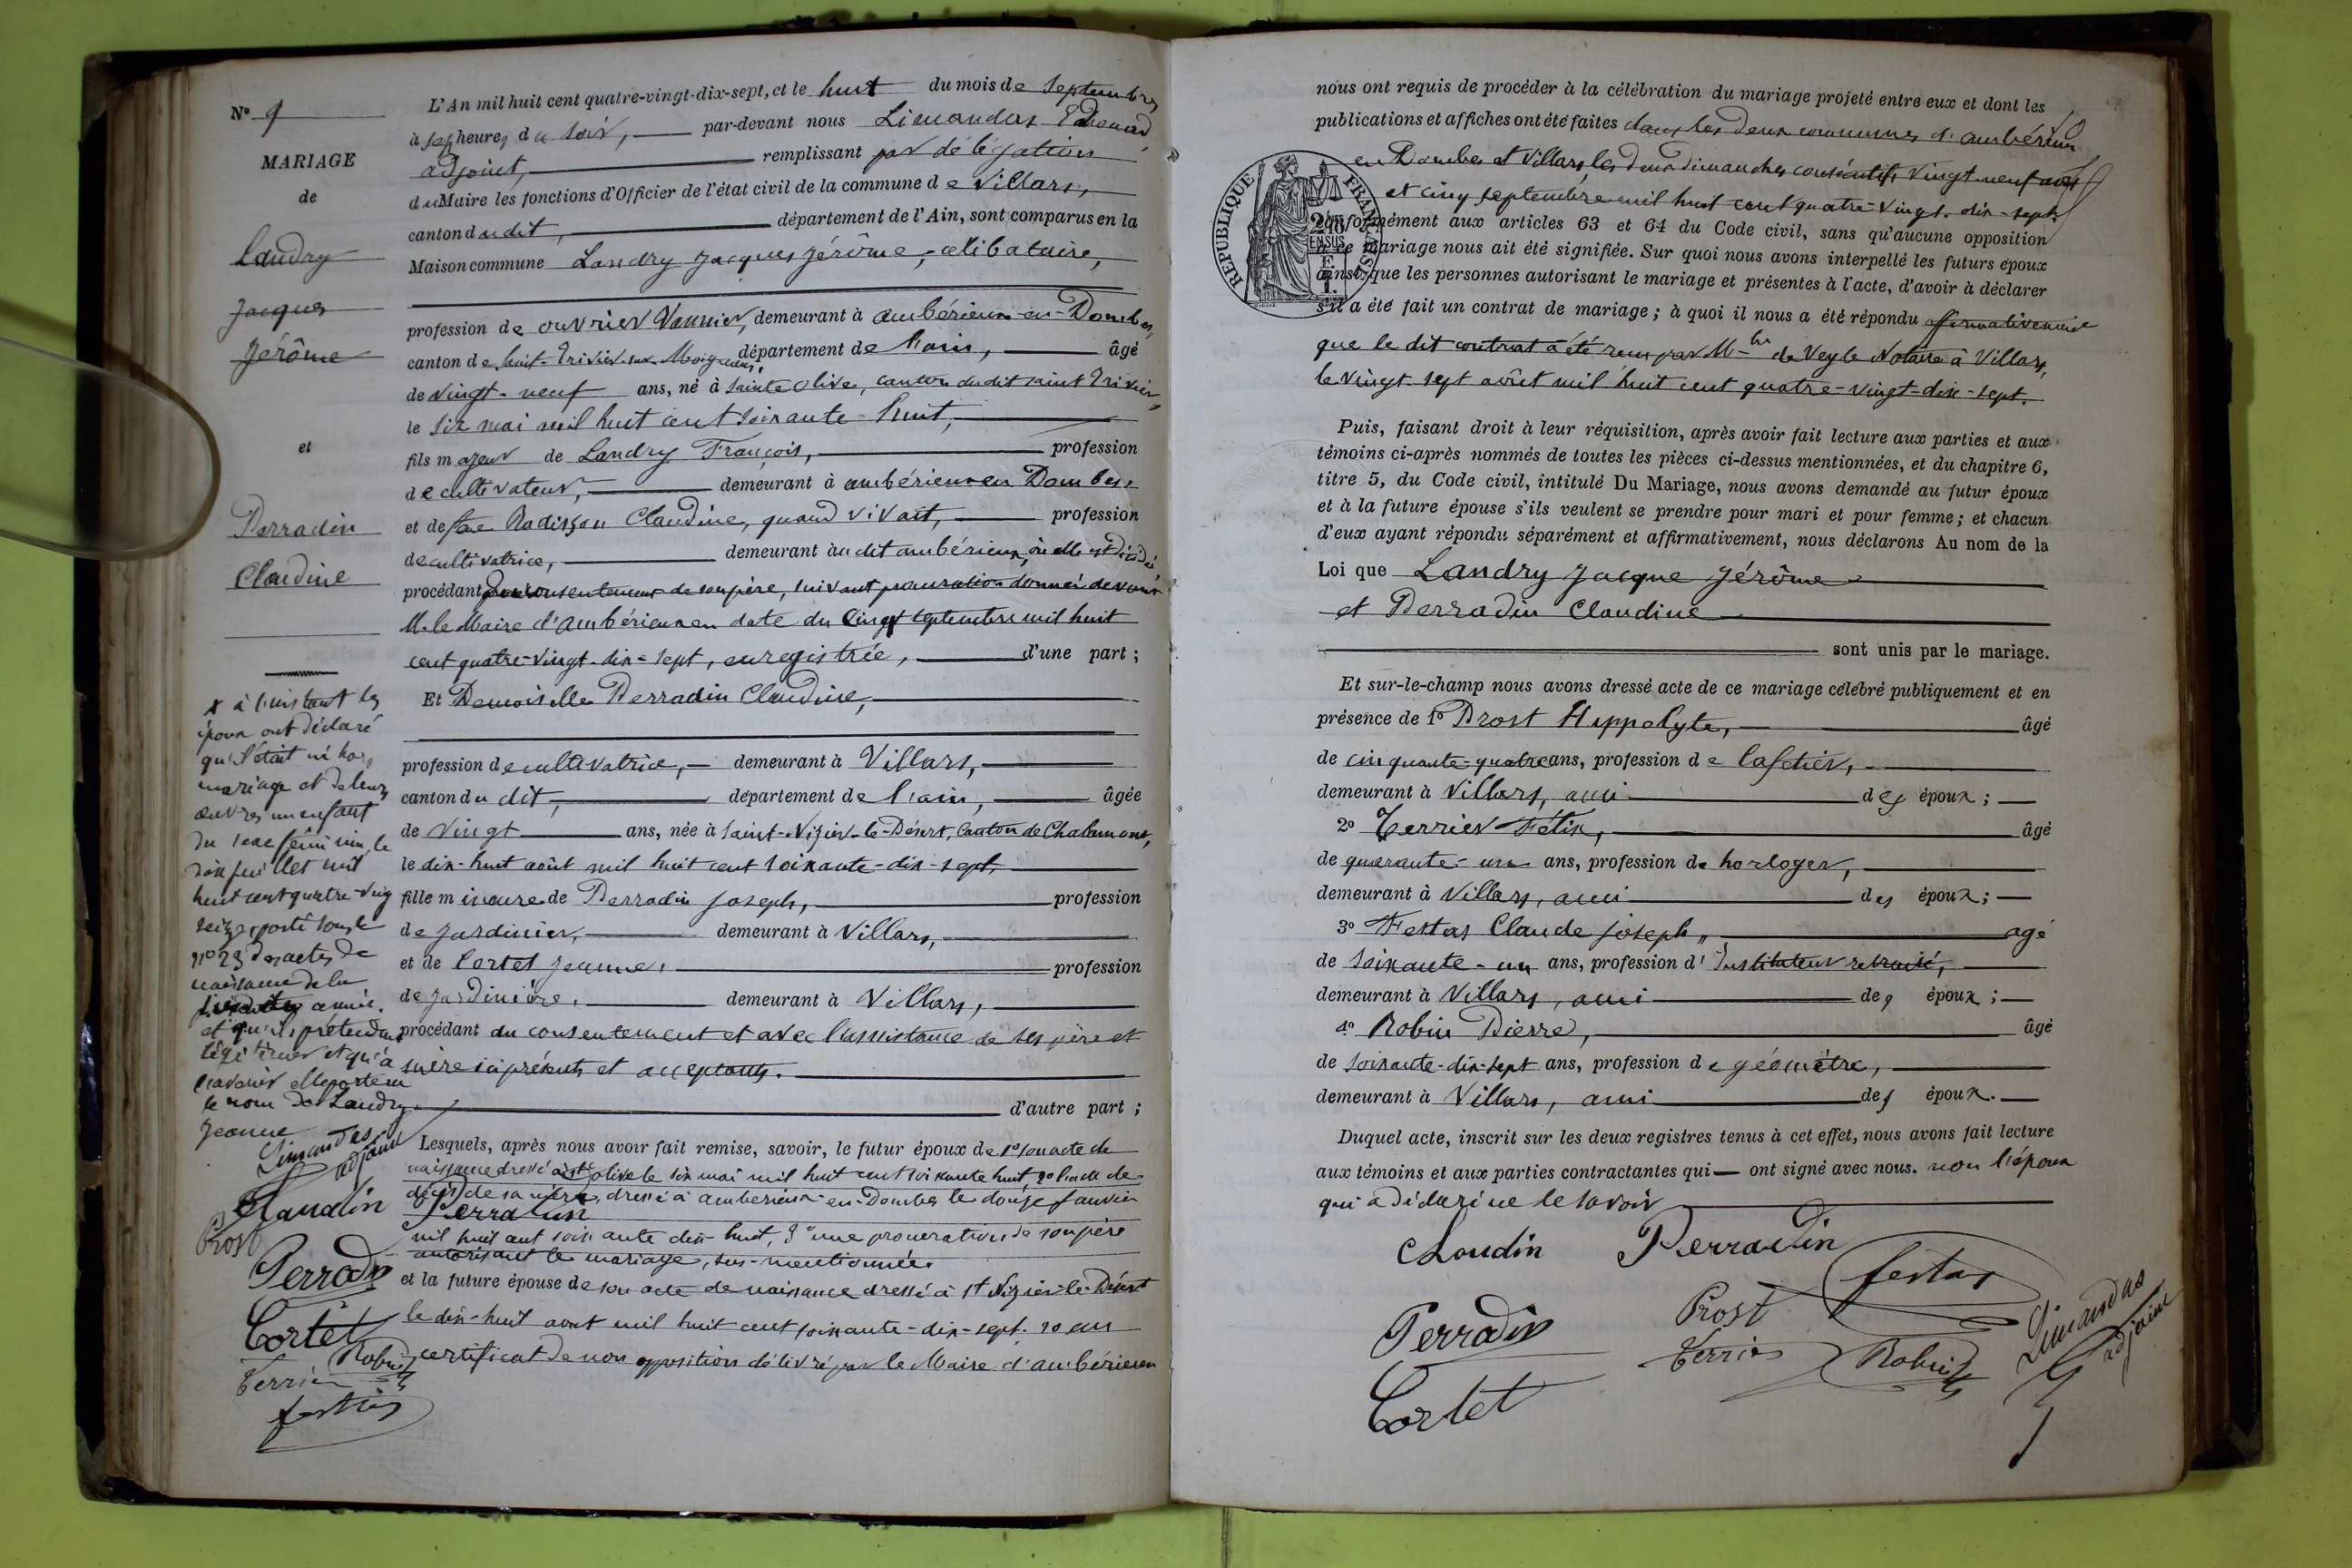 N° 9
MARIAGE
de
Landry
Jacques
Jérôme
et
Perradin
Claudine
L'An mil huit cent quatre-vingt-dix-sept, et le huit du mois de Septembre
à sept heures du soir, par-devant nous Limandas Edouard
adjoint, remplissant par délégation
du Maire les fonctions d'Officier de l'état civil de la commune de Villars,
canton dudit, département de l'Ain, sont comparus en la
Maison commune Landry Jacques Jérôme, célibataire,
profession de ouvrier Vannier, demeurant à ambérieux-en-Dombes,
canton de Saint-Trivier-sur-Moignans, département de l'ain, âgé
de vingt-neuf ans, né à Sainte Olive, canton dudit saint Trivier,
le six mai mil huit cent soixante-huit,
fils majeur de Landry François, profession
de cultivateur, demeurant à ambérieux en Dombes,
et de feue Radisson Claudine, quand vivait, profession
de cultivatrice, demeurant audit ambérieux, où elle est décédée
procédant du consentement de son père, suivant procuration donnée devant
M. le Maire d'ambérieux en date du cinq septembre mil huit
cent quatre-vingt-dix-sept, enregistrée, d'une part ;
Et Demoiselle Perradin Claudine,
profession de cultivatrice, demeurant à Villars,
canton du dit, département de l'ain, âgée
de vingt ans, née à Saint-Nizier-le-Désert, Canton de Chalamont,
le dix-huit août mil huit cent soixante-dix-sept,
fille mineure de Perradin Joseph, profession
de jardinier, demeurant à Villars,
et de Cortet Jeanne, profession
de jardinière, demeurant à Villars,
procédant du consentement et avec l'assistance de ses père et
mère ici présents et acceptants.
d'autre part ;
Lesquels, après nous avoir fait remise, savoir, le futur époux de 1° son acte de
naissance dressé à Ste olive le six mai mil huit cent soixante huit, 2° l'acte de
décès de sa mère, dressé à ambérieux-en-Dombes le douze janvier
mil huit cent soixante dix-huit, 3° une procuration de son père
autorisant le mariage, sus-mentionnée.
et la future épouse de son acte de naissance dressé à St Nizier-le-Désert
le dix-huit aout mil huit cent soixante-dix-sept.
certificat de non opposition délivré par le Maire d'ambérieux
x à l'instant les
époux ont déclaré
qu'il était né hors
mariage et de leurs
œuvres un enfant
du sexe féminin, le
dix juillet mil
huit cent quatre-vingt
seize, porté sous le
n° 23 des actes de
naissance de la
année.
et qu'ils prétendent
légitimer et qu'à
l'avenir elle portera
le nom de Landry
Jeanne
Limandas
adjoint
Claudin
Perradin
Prost
Perradin
Cortet
Robin
Terrier
festas
nous ont requis de procéder à la célébration du mariage projeté entre eux et dont les
publications et affiches ont été faites dans les deux communes d'ambérieux
en Dombes et Villars, les deux dimanches consécutifs vingt-neuf août
et cinq septembre mil huit cent quatre-vingt-dix-sept.
conformément aux articles 63 et 64 du Code civil, sans qu'aucune opposition
à ce mariage nous ait été signifiée. Sur quoi nous avons interpellé les futurs époux
ainsi que les personnes autorisant le mariage et présentes à l'acte, d'avoir à déclarer
s'il a été fait un contrat de mariage ; à quoi il nous a été répondu affirmativement
que le dit contrat a été reçu par Me de Veyle Notaire à Villars,
le vingt-sept août mil huit cent quatre-vingt-dix-sept.
RÉPUBLIQUE FRANÇAISE
Puis, faisant droit à leur réquisition, après avoir fait lecture aux parties et aux
témoins ci-après nommés de toutes les pièces ci-dessus mentionnées, et du chapitre 6,
titre 5, du Code civil, intitulé Du Mariage, nous avons demandé au futur époux
et à la future épouse s'ils veulent se prendre pour mari et pour femme ; et chacun
d'eux ayant répondu séparément et affirmativement, nous déclarons Au nom de la
Loi que Landry Jacque Jérôme
et Perradin Claudine
sont unis par le mariage.
Et sur-le-champ nous avons dressé acte de ce mariage célébré publiquement et en
présence de 1° Prost Hippolyte, âgé
de cinquante-quatre ans, profession de cafetier,
demeurant à Villars, ami des époux ;
2° Terrier Félix, âgé
de quarante-un ans, profession de horloger,
demeurant à Villars, ami des époux ;
3° Festas Claude Joseph, agé
de soixante-un ans, profession d'Instituteur retraité,
demeurant à Villars, ami des époux ;
4° Robin Pierre, âgé
de soixante-dix-sept ans, profession de géomètre,
demeurant à Villars, ami des époux.
Duquel acte, inscrit sur les deux registres tenus à cet effet, nous avons fait lecture
aux témoins et aux parties contractantes qui ont signé avec nous. non l'époux
qui a déclaré ne le savoir
Claudin Perradin
festas
Perradin
Prost
Limandas
adjoint
Terrier
Robin
Cortet